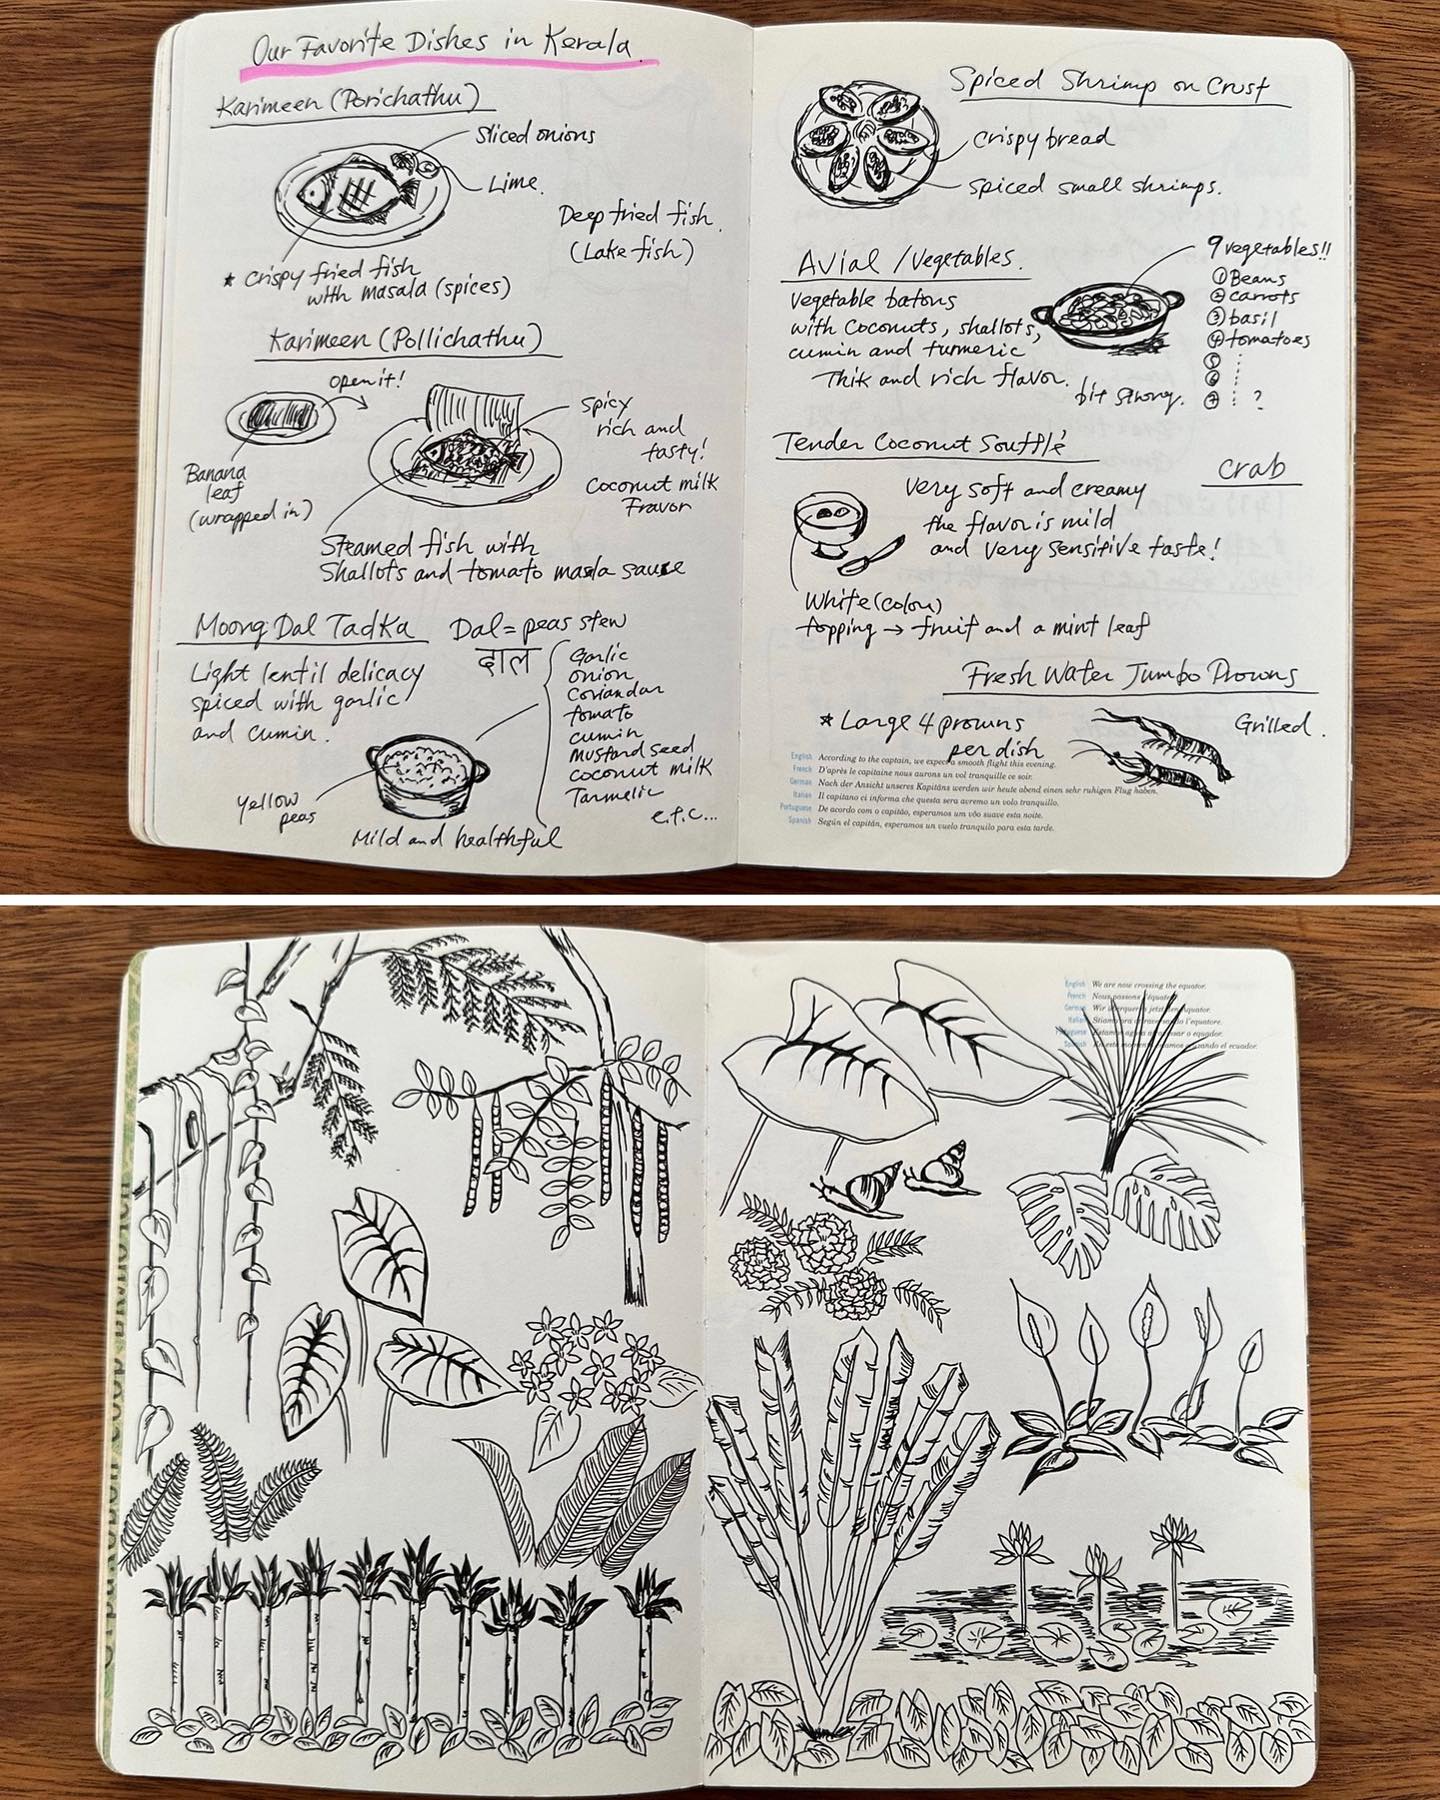 Our Favorite Dishes in Kerala.
Karimeen (Porichathu)
Sliced onions
Lime.
Deep fried fish.
(Lake fish)
* crispy fried fish
with masala (spices)
Karimeen (Pollichathu)
open it!
Banana
leaf
(wrapped in)
spicy
rich and
tasty!
Coconut milk
Fravor
Steamed fish with
Shallots and tomato masala sauce
Moong Dal Tadka
Dal = peas stew
दाल
Light lentil delicacy
spiced with garlic
and cumin.
Garlic
onion
Coriandar
tomato
cumin
Mustard seed
coconut milk
Tarmelic
e.t.c...
yellow
peas
Mild and healthful
Spiced Shrimp on Crust
crispy bread
spiced small shrimps.
Avial / Vegetables.
vegetable batons
with coconuts, shallots,
cumin and turmeric
Thik and rich flavor.
bit strong.
9 vegetables!!
① Beans
② carrots
③ basil
④ tomatoes
⑤ ⋮
⑥ ⋮
⑦ ⋮ ?
Tender Coconut Soufflé
very soft and creamy
the flavor is mild
and very sensitive taste!
White (colou)
topping → fruit and a mint leaf
crab
Fresh Water Jumbo Prowns
* Large 4 prowns
per dish
Grilled.
English According to the captain, we expect a smooth flight this evening.
French D'après le capitaine nous aurons un vol tranquille ce soir.
German Nach der Ansicht unseres Kapitäns werden wir heute abend einen sehr ruhigen Flug haben.
Italian Il capitano ci informa che questa sera avremo un volo tranquillo.
Portuguese De acordo com o capitão, esperamos um vôo suave esta noite.
Spanish Según el capitán, esperamos un vuelo tranquilo para esta tarde.
English We are now crossing the equator.
French Nous passons l'équateur.
German Wir überqueren jetzt den Äquator.
Italian Stiamo ora attraversando l'equatore.
Portuguese Estamos agora a passar o equador.
Spanish En este momento estamos cruzando el ecuador.